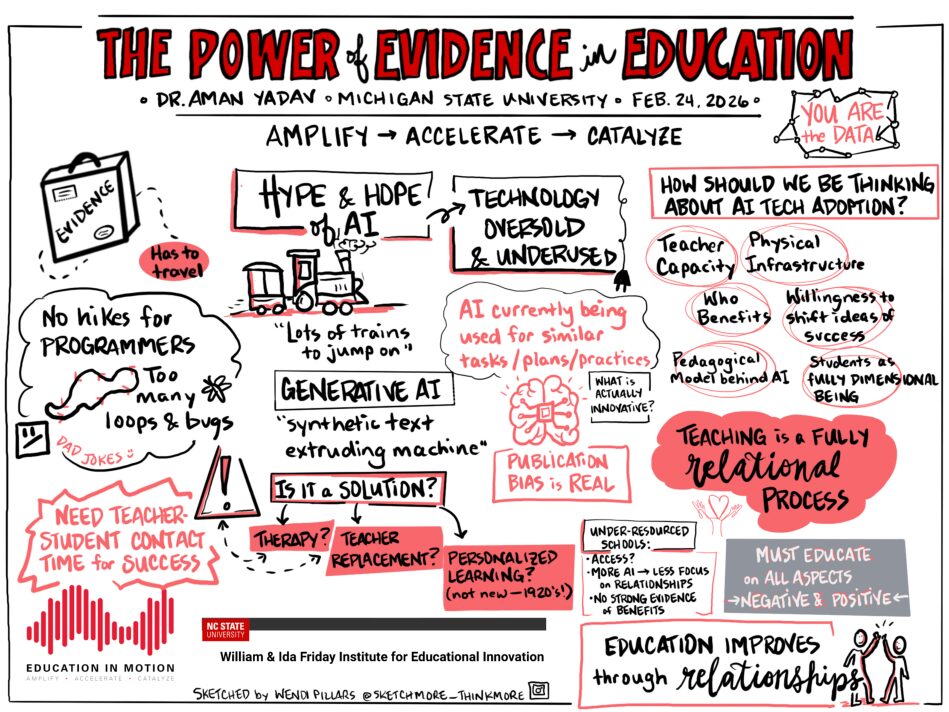 THE POWER of EVIDENCE in EDUCATION
• DR. AMAN YADAV • MICHIGAN STATE UNIVERSITY • FEB. 24, 2026 •
AMPLIFY → ACCELERATE → CATALYZE
YOU ARE
the DATA
EVIDENCE
Has to
travel
HYPE & HOPE
of AI
"Lots of trains
to jump on"
TECHNOLOGY
OVERSOLD
& UNDERUSED
HOW SHOULD WE BE THINKING
ABOUT AI TECH ADOPTION?
Teacher
Capacity
Physical
Infrastructure
Who
Benefits
Willingness to
shift ideas of
success
Pedagogical
Model behind AI
Students as
FULLY DIMENSIONAL
BEING
No hikes for
PROGRAMMERS
Too
many
loops & bugs
DAD JOKES
AI currently being
used for similar
tasks/plans/practices
WHAT IS
ACTUALLY
INNOVATIVE?
PUBLICATION
BIAS is REAL
GENERATIVE AI
"synthetic text
extruding machine"
TEACHING is a FULLY
relational
PROCESS
!
IS IT a SOLUTION?
THERAPY?
TEACHER
REPLACEMENT?
PERSONALIZED
LEARNING?
(not new - 1920's!)
NEED TEACHER-
STUDENT CONTACT
TIME for SUCCESS
UNDER-RESOURCED
SCHOOLS:
• ACCESS?
• MORE AI → LESS FOCUS
on RELATIONSHIPS
• NO STRONG EVIDENCE
of BENEFITS
MUST EDUCATE
on ALL ASPECTS
→ NEGATIVE & POSITIVE ←
EDUCATION IMPROVES
through relationships
EDUCATION IN MOTION
AMPLIFY • ACCELERATE • CATALYZE
NC STATE
UNIVERSITY
William & Ida Friday Institute for Educational Innovation
SKETCHED by WENDI PILLARS @SKETCHMORE_THINKMORE